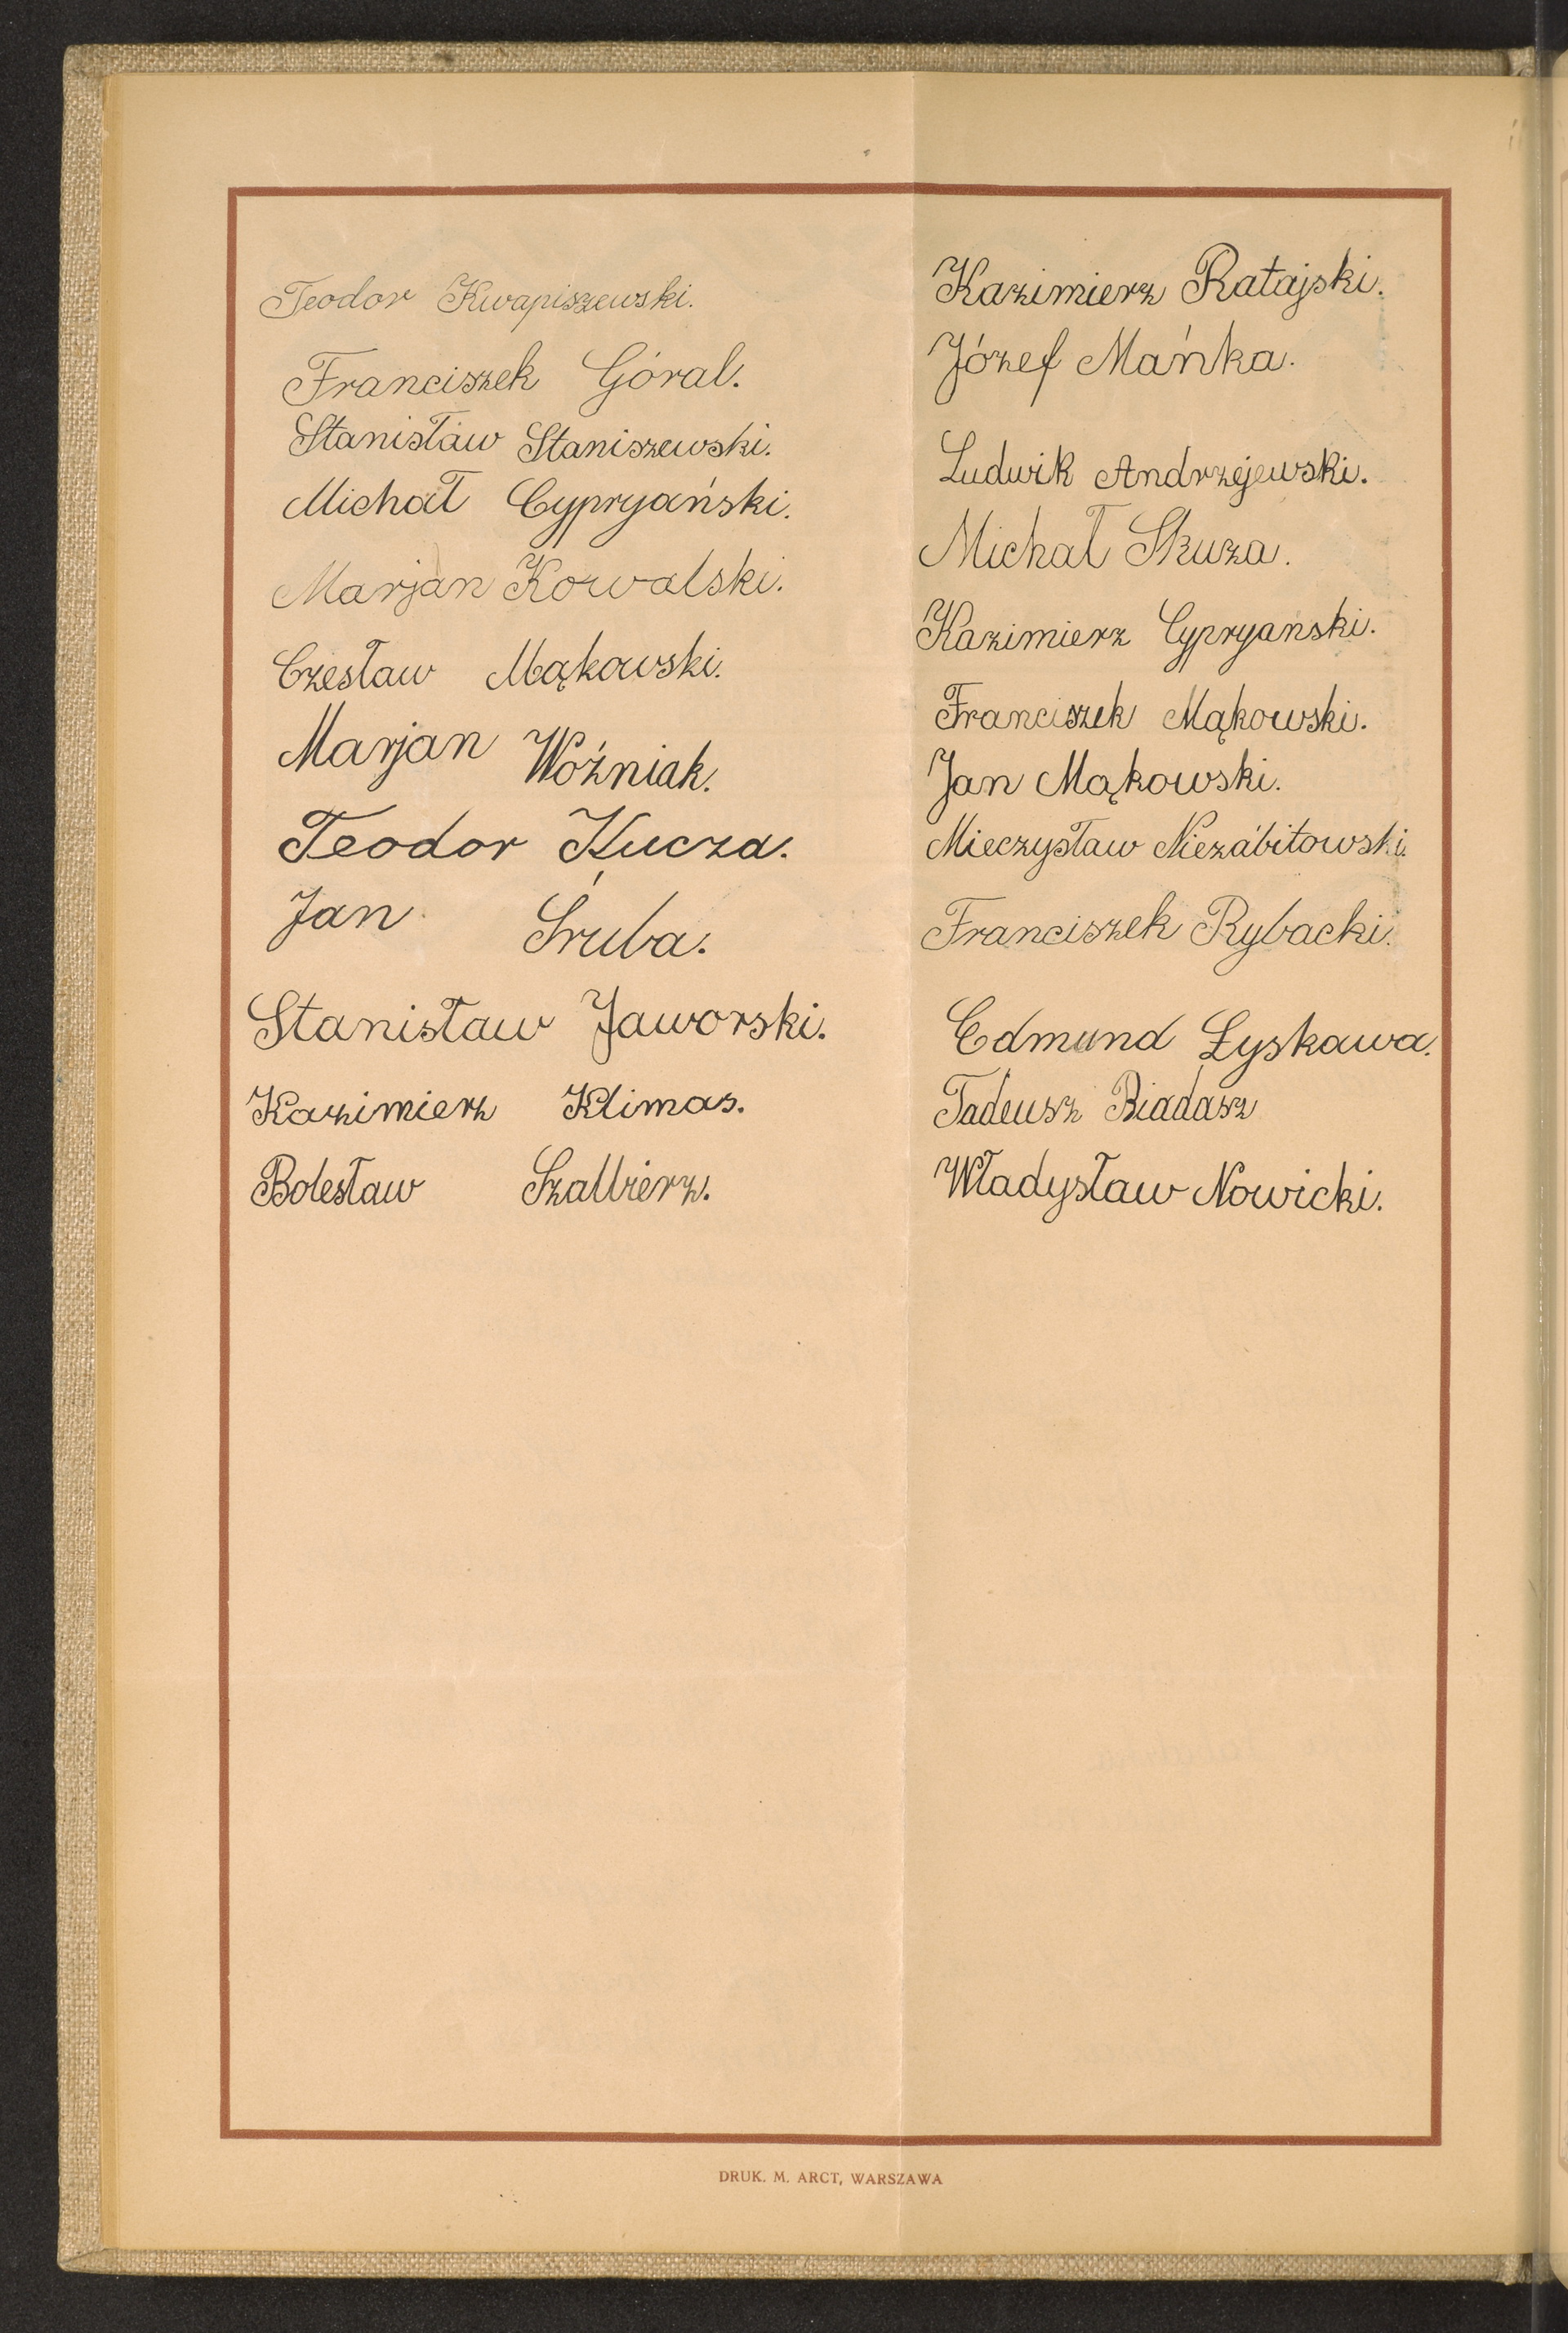 Teodor Kwapiszewski.
Franciszek Góral.
Stanisław Staniszewski.
Michał Cypryański.
Marjan Kowalski.
Czesław Mąkowski.
Marjan Woźniak.
Teodor Kucza.
Jan Śruba.
Stanisław Jaworski.
Kazimierz Klimas.
Bolesław Szalbierz.
Kazimierz Ratajski.
Józef Mańka.
Ludwik Andrzejewski.
Michał Skuza.
Kazimierz Cypryanski.
Franciszek Mąkowski.
Jan Mąkowski.
Mieczysław Niezabitowski.
Franciszek Rybacki.
Edmund Łyskawa.
Tadeusz Biadasz
Władysław Nowicki.
DRUK. M. ARCT, WARSZAWA